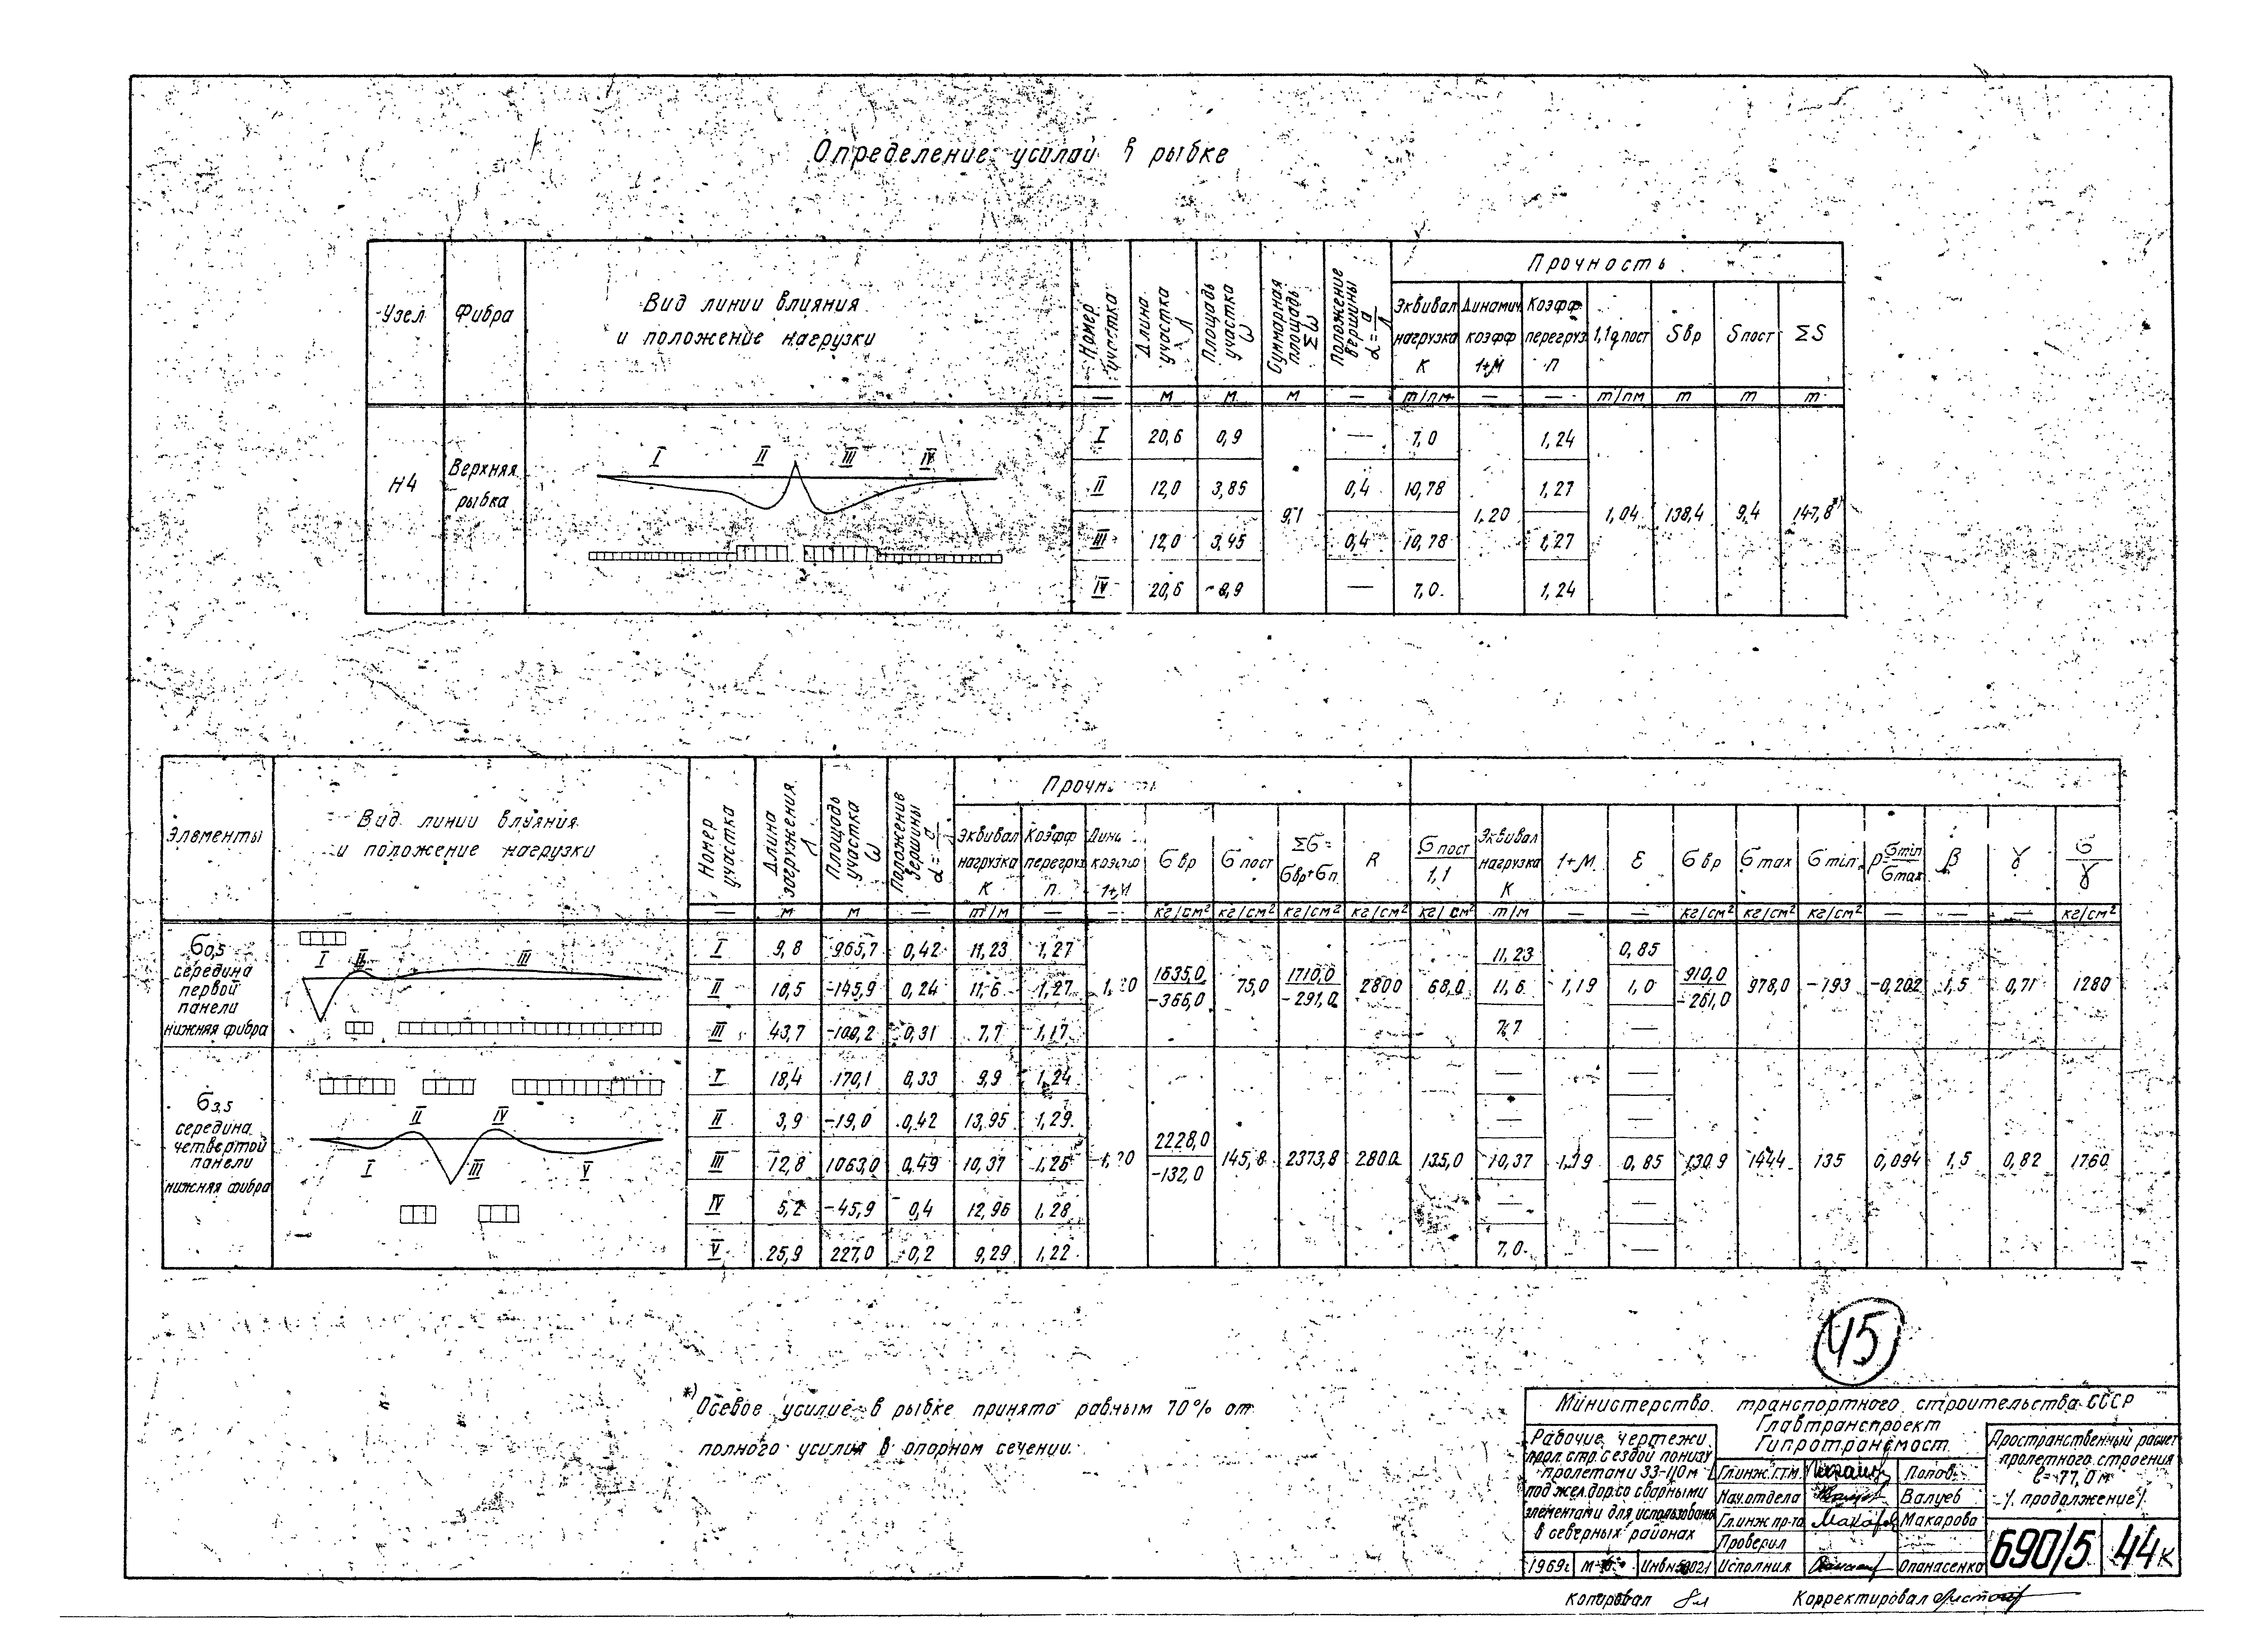 Определение усилий в рыбке
Узел
Фибра
Вид линии влияния
и положение нагрузки
Номер участка
Длина участка Λ
Площадь участка ω
Суммарная площадь Σω
Положение вершины α = a/Λ
Прочность
Эквивал нагрузка K
Динамич коэфф 1+М
Коэфф перегруз п
1,1q пост
S вр
S пост
ΣS
— м м м — т/пм — — т/пм т т т
H4
Верхняя рыбка
I II III IV
I 20,6 0,9 — 7,0 1,24
II 12,0 3,85 0,4 10,78 1,27
9,1 1,20 1,04 138,4 9,4 147,8*)
III 12,0 3,45 0,4 10,78 1,27
IV 20,6 0,9 — 7,0 1,24
Элементы
Вид линии влияния
и положение нагрузки
Номер участка
Длина загружения Λ
Площадь участка ω
Положение вершины α = a/Λ
Эквивал нагрузка K
Коэфф перегруз п
коэфф 1+М
σ вр
σ пост
Σσ = σвр+σп
R
σ пост / 1,1
Эквивал нагрузка K
1+М
ε
σ вр
σ max
σ min
ρ=σmin/σmax
β
γ
σ/γ
— м м — т/м — — кг/см² кг/см² кг/см² кг/см² кг/см² т/м — — кг/см² кг/см² кг/см² — — — кг/см²
σ0,5
середина
первой
панели
нижняя фибра
I II III
I 9,8 965,7 0,42 11,23 1,27 11,23 0,85
II 16,5 -145,9 0,24 11,6 1,27 1635,0/-366,0 75,0 1710,0/-291,0 2800 68,0 11,6 1,19 1,0 910,0/-261,0 978,0 -193 -0,202 1,5 0,71 1280
III 43,7 -109,2 0,31 7,7 1,17 7,7 —
σ3,5
середина
четвертой
панели
нижняя фибра
II IV
I III V
I 18,4 170,1 0,33 9,9 1,24 — —
II 3,9 -19,0 0,42 13,95 1,29 — —
III 12,8 1063,0 0,49 10,37 1,26 2228,0/-132,0 145,8 2373,8 2800 135,0 10,37 1,19 0,85 1309 1444 135 0,094 1,5 0,82 1760
IV 5,2 -45,9 0,4 12,96 1,28 — —
V 25,9 227,0 0,2 9,29 1,22 7,0 —
45
*) Осевое усилие в рыбке принято равным 70% от
полного усилия в опорном сечении.
Министерство транспортного строительства СССР
Главтранспроект
Гипротрансмост
Рабочие чертежи
прол. стр. с ездой понизу
пролетами 33-110м
под жел.дор. со сварными
элементами для использован
в северных районах
Гл.инж. ГТМ Попов
Нач. отдела Валуев
Гл.инж пр-та Макарова
Проверил
Исполнил Опанасенко
Пространственный расчет
пролетного строения
ℓ=77,0 м
/продолжение/
1969г
690/5
44к
копировал
Корректировал